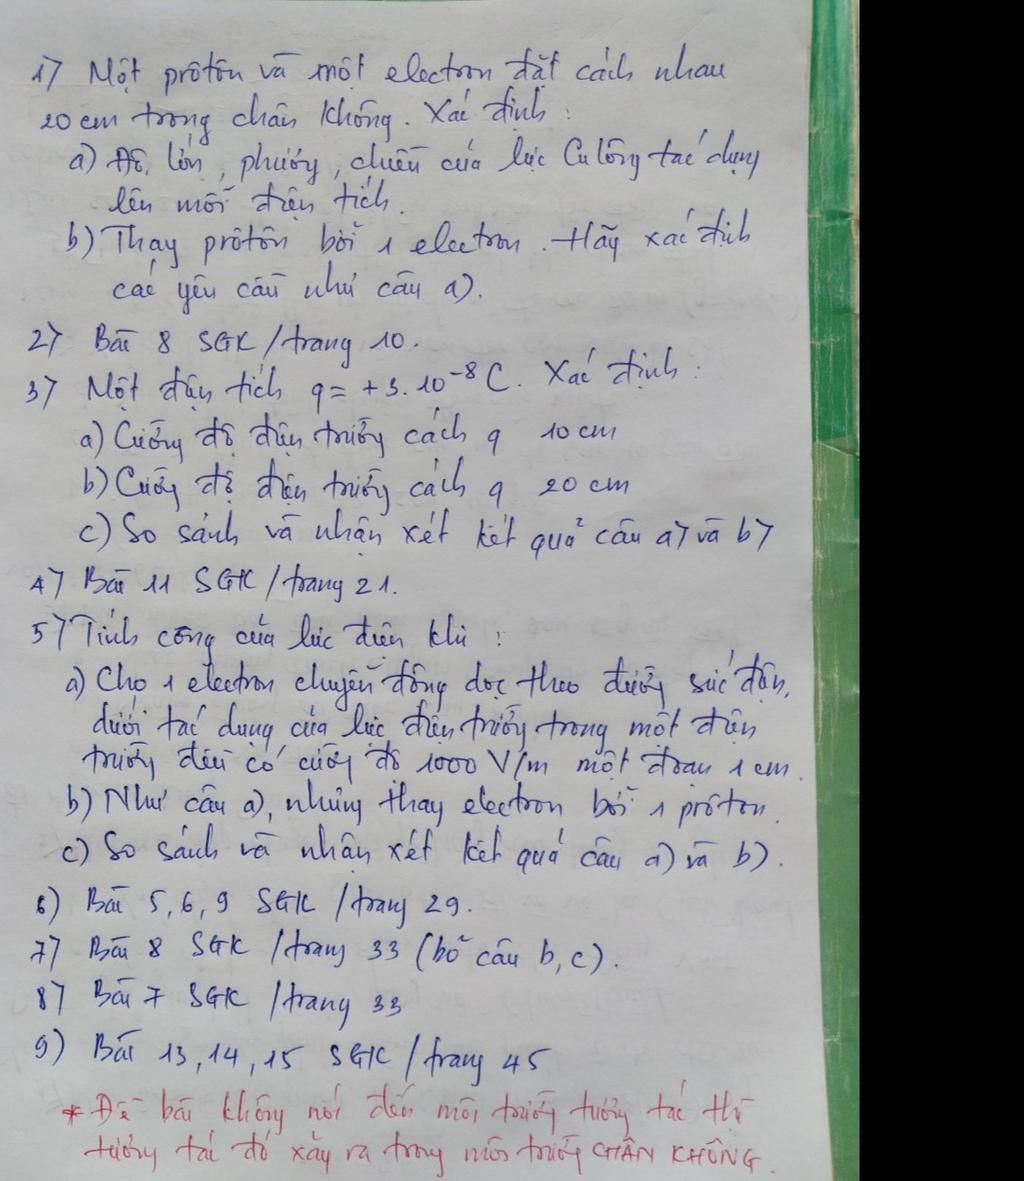 1) Một prôtôn và một electron đặt cách nhau
20 cm trong chân không. Xác định :
a) Độ lớn, phương, chiều của lực Culông tác dụng
lên mỗi điện tích.
b) Thay prôtôn bởi 1 electron. Hãy xác định
các yêu cầu như câu a).
2) Bài 8 SGK / trang 10.
3) Một điện tích q = +3.10⁻⁸ C. Xác định :
a) Cường độ điện trường cách q 10 cm
b) Cường độ điện trường cách q 20 cm
c) So sánh và nhận xét kết quả câu a) và b)
4) Bài 11 SGK / trang 21.
5) Tính công của lực điện khi :
a) Cho 1 electron chuyển động dọc theo đường sức điện,
dưới tác dụng của lực điện trường trong một điện
trường đều có cường độ 1000 V/m một đoạn 1 cm.
b) Như câu a), nhưng thay electron bởi 1 prôton.
c) So sánh và nhận xét kết quả câu a) và b).
6) Bài 5, 6, 9 SGK / trang 29.
7) Bài 8 SGK / trang 33 (bỏ câu b, c).
8) Bài 7 SGK / trang 33
9) Bài 13, 14, 15 SGK / trang 45
* Đề bài không nói đến môi trường tương tác thì
tương tác đó xảy ra trong môi trường CHÂN KHÔNG.